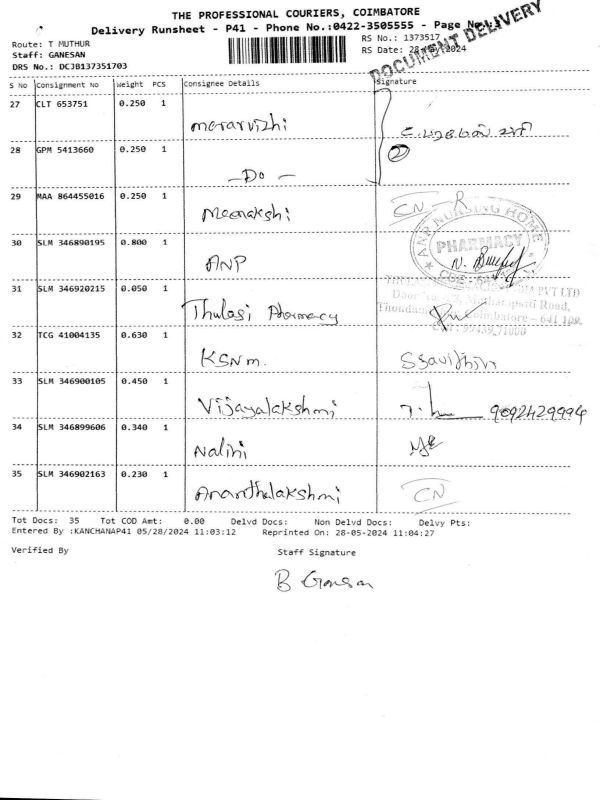 THE PROFESSIONAL COURIERS, COIMBATORE
Delivery Runsheet - P41 - Phone No.:0422-3505555 - Page No.:
DOCUMENT DELIVERY
Route: T MUTHUR
RS No.: 1373517
Staff: GANESAN
RS Date: 28-05-2024
DRS No.: DCJB137351703
S No Consignment No Weight PCS Consignee Details Signature
27 CLT 653751 0.250 1
Malarvizhi
28 GPM 5413660 0.250 1
②
- Do -
29 MAA 864455016 0.250 1
Meenakshi CN - R
30 SLM 346890195 0.800 1
ANP NURSING HOME
PHARMACY
ANP
31 SLM 346920215 0.050 1
Door
Road,
Coimbatore - 641 109.
Thulasi Pharmacy
32 TCG 41004135 0.630 1
KSNM.
33 SLM 346900105 0.450 1
Vijayalakshmi 9092429994
34 SLM 346899606 0.340 1
Nalini
35 SLM 346902163 0.230 1
Ananthalakshmi CN
Tot Docs: 35 Tot COD Amt: 0.00 Delvd Docs: Non Delvd Docs: Delvy Pts:
Entered By :KANCHANAP41 05/28/2024 11:03:12 Reprinted On: 28-05-2024 11:04:27
Verified By Staff Signature
B Ganesan